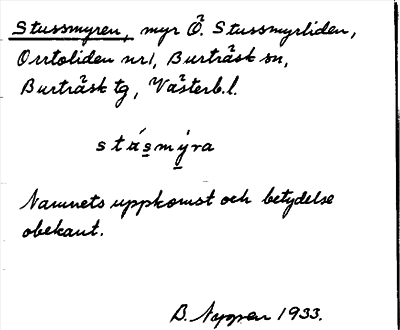 Stussmyren, myr Ö. Stussmyrliden,
Orrtoliden nr 1, Burträsk sn,
Burträsk tg, Västerb.l.
Namnets uppkomst och betydelse
obekant.
B. Nygren 1933.